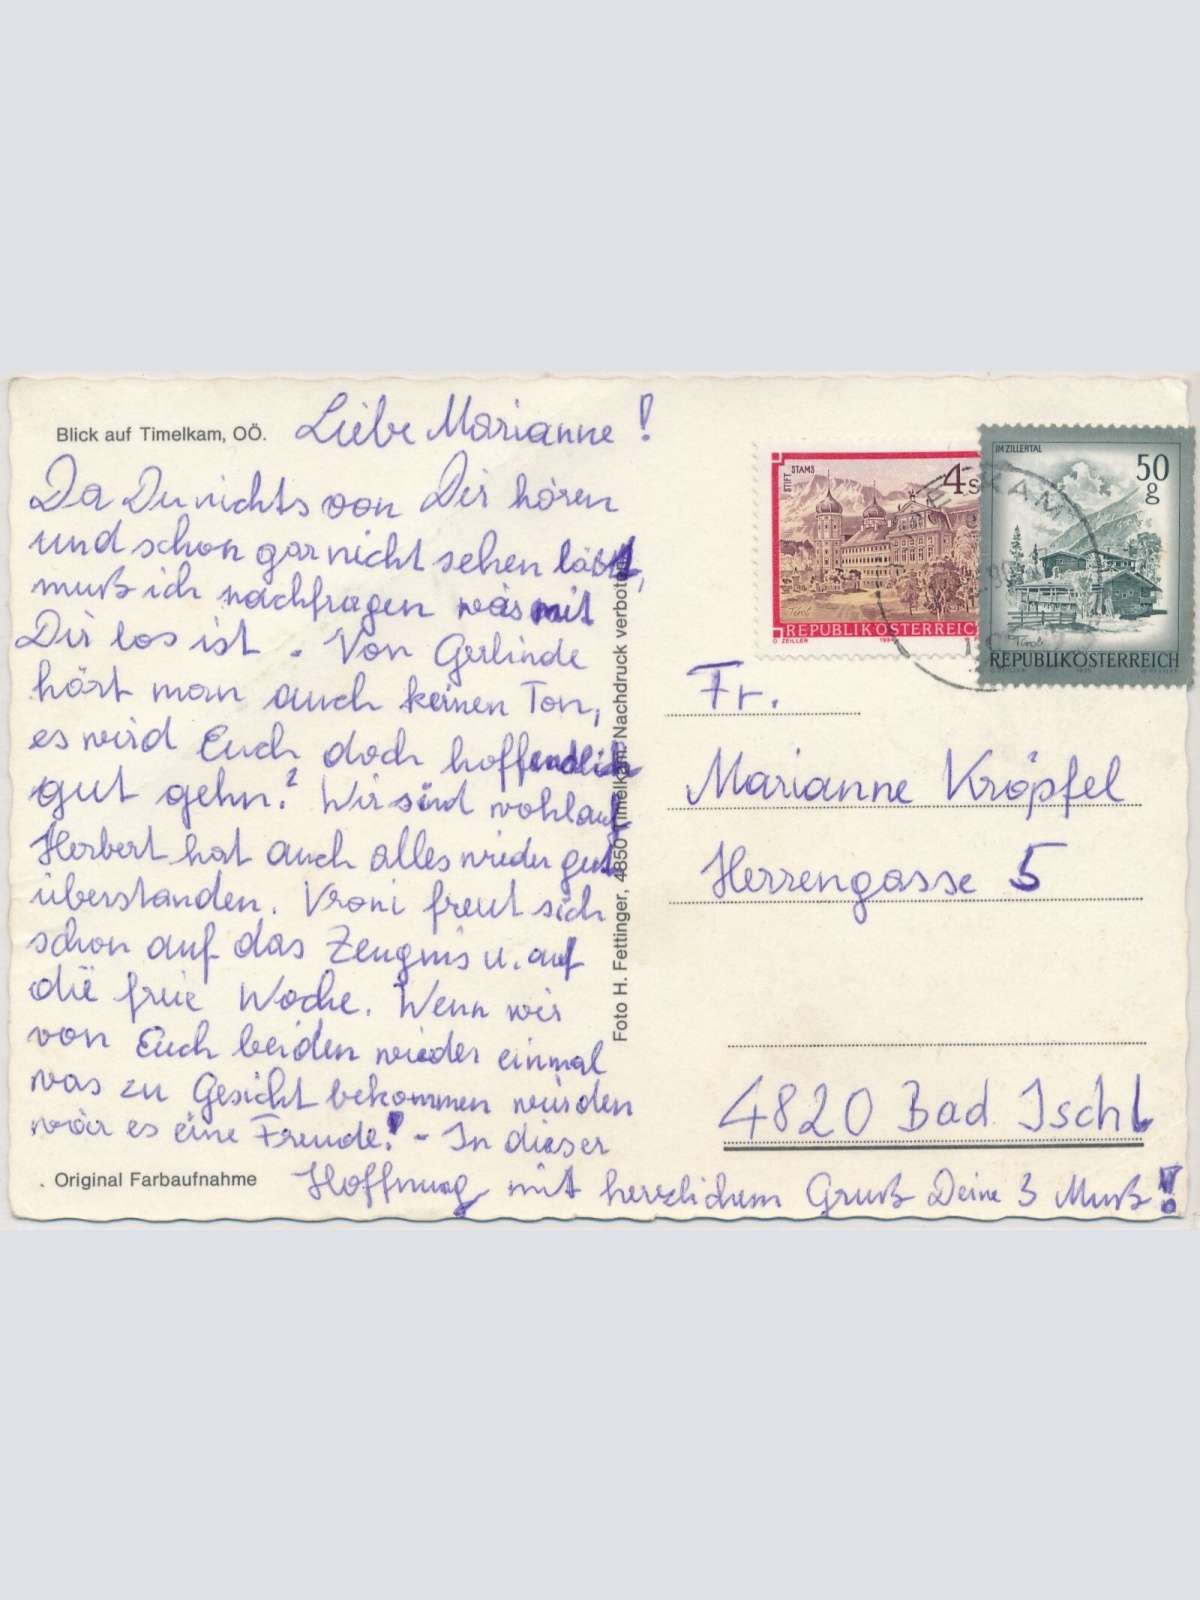 Blick auf Timelkam, OÖ.
Liebe Marianne!
Da Du nichts von Dir hören
und schon gar nicht sehen läßt,
muß ich nachfragen was mit
Dir los ist. Von Gerlinde
hört man auch keinen Ton,
es wird Euch doch hoffendlich
gut gehn? Wir sind wohlauf
Herbert hat auch alles wieder gut
überstanden. Vroni freut sich
schon auf das Zeugnis u. auf
die freie Woche. Wenn wir
von Euch beiden wieder einmal
was zu Gesicht bekommen würden
wär es eine Freude! - In dieser
Hoffnung mit herzlichem Gruß Deine 3 Muß!
Original Farbaufnahme
Foto H. Fettinger, 4850 Timelkam. Nachdruck verboten
STIFT STAMS
4 S
Tirol
REPUBLIK ÖSTERREICH
O. ZEILLER 1984
IM ZILLERTAL
50 g
Tirol
REPUBLIK ÖSTERREICH
Fr.
Marianne Kröpfel
Herrengasse 5
4820 Bad Ischl